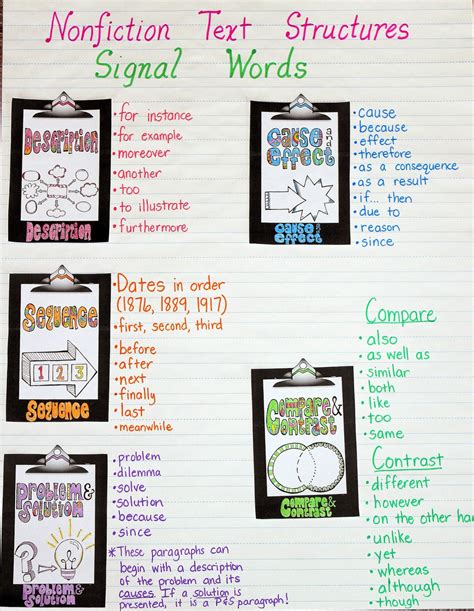 Nonfiction Text Structures
Signal Words
Description
Description
• for instance
• for example
• moreover
• another
• too
• to illustrate
• furthermore
Cause and
effect
Cause and
Effect
• cause
• because
• effect
• therefore
• as a consequence
• as a result
• if... then
• due to
• reason
• since
Sequence
1 2 3
Sequence
• Dates in order
(1876, 1889, 1917)
• first, second, third
• before
• after
• next
• finally
• last
• meanwhile
Compare &
Contrast
Compare &
Contrast
Compare
• also
• as well as
• similar
• both
• like
• too
• same
Contrast
• different
• however
• on the other han
• unlike
• yet
• whereas
• although
• though
Problem &
Solution
?
Problem &
Solution
• problem
• dilemma
• solve
• solution
• because
• since
* These paragraphs can
begin with a description
of the problem and its
causes. If a solution is
presented, it is a P&S paragraph!